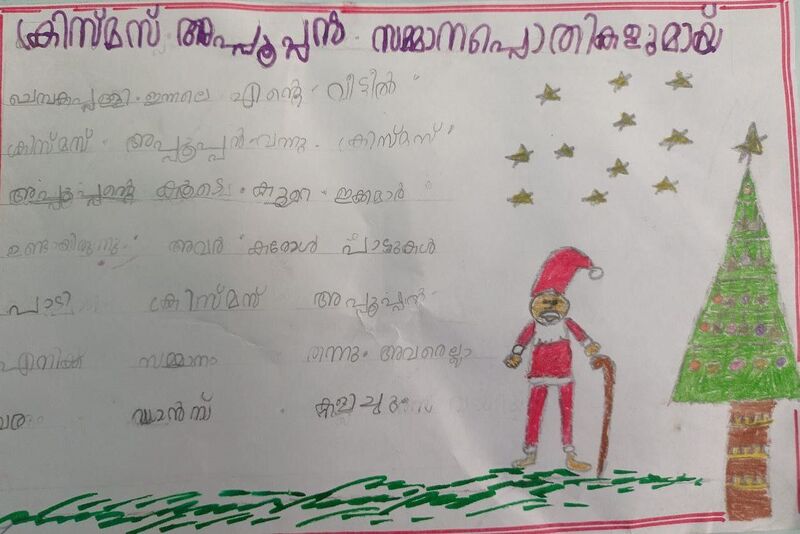 ക്രിസ്മസ് അപ്പൂപ്പൻ സമ്മാനപ്പൊതികളുമായ്
ഇന്നലെ എൻ്റെ വീട്ടിൽ
ക്രിസ്മസ് അപ്പൂപ്പൻ വന്നു. ക്രിസ്മസ്
അപ്പൂപ്പൻ്റെ കൂടെ കുറെ ഇക്കമാർ
ഉണ്ടായിരുന്നു. അവർ കരോൾ പാട്ടുകൾ
പാടി ക്രിസ്മസ് അപ്പൂപ്പൻ
എനിക്ക സമ്മാനം തന്നു. അവരെല്ലാ
വരു ഡാൻസ് കളിച്ചു